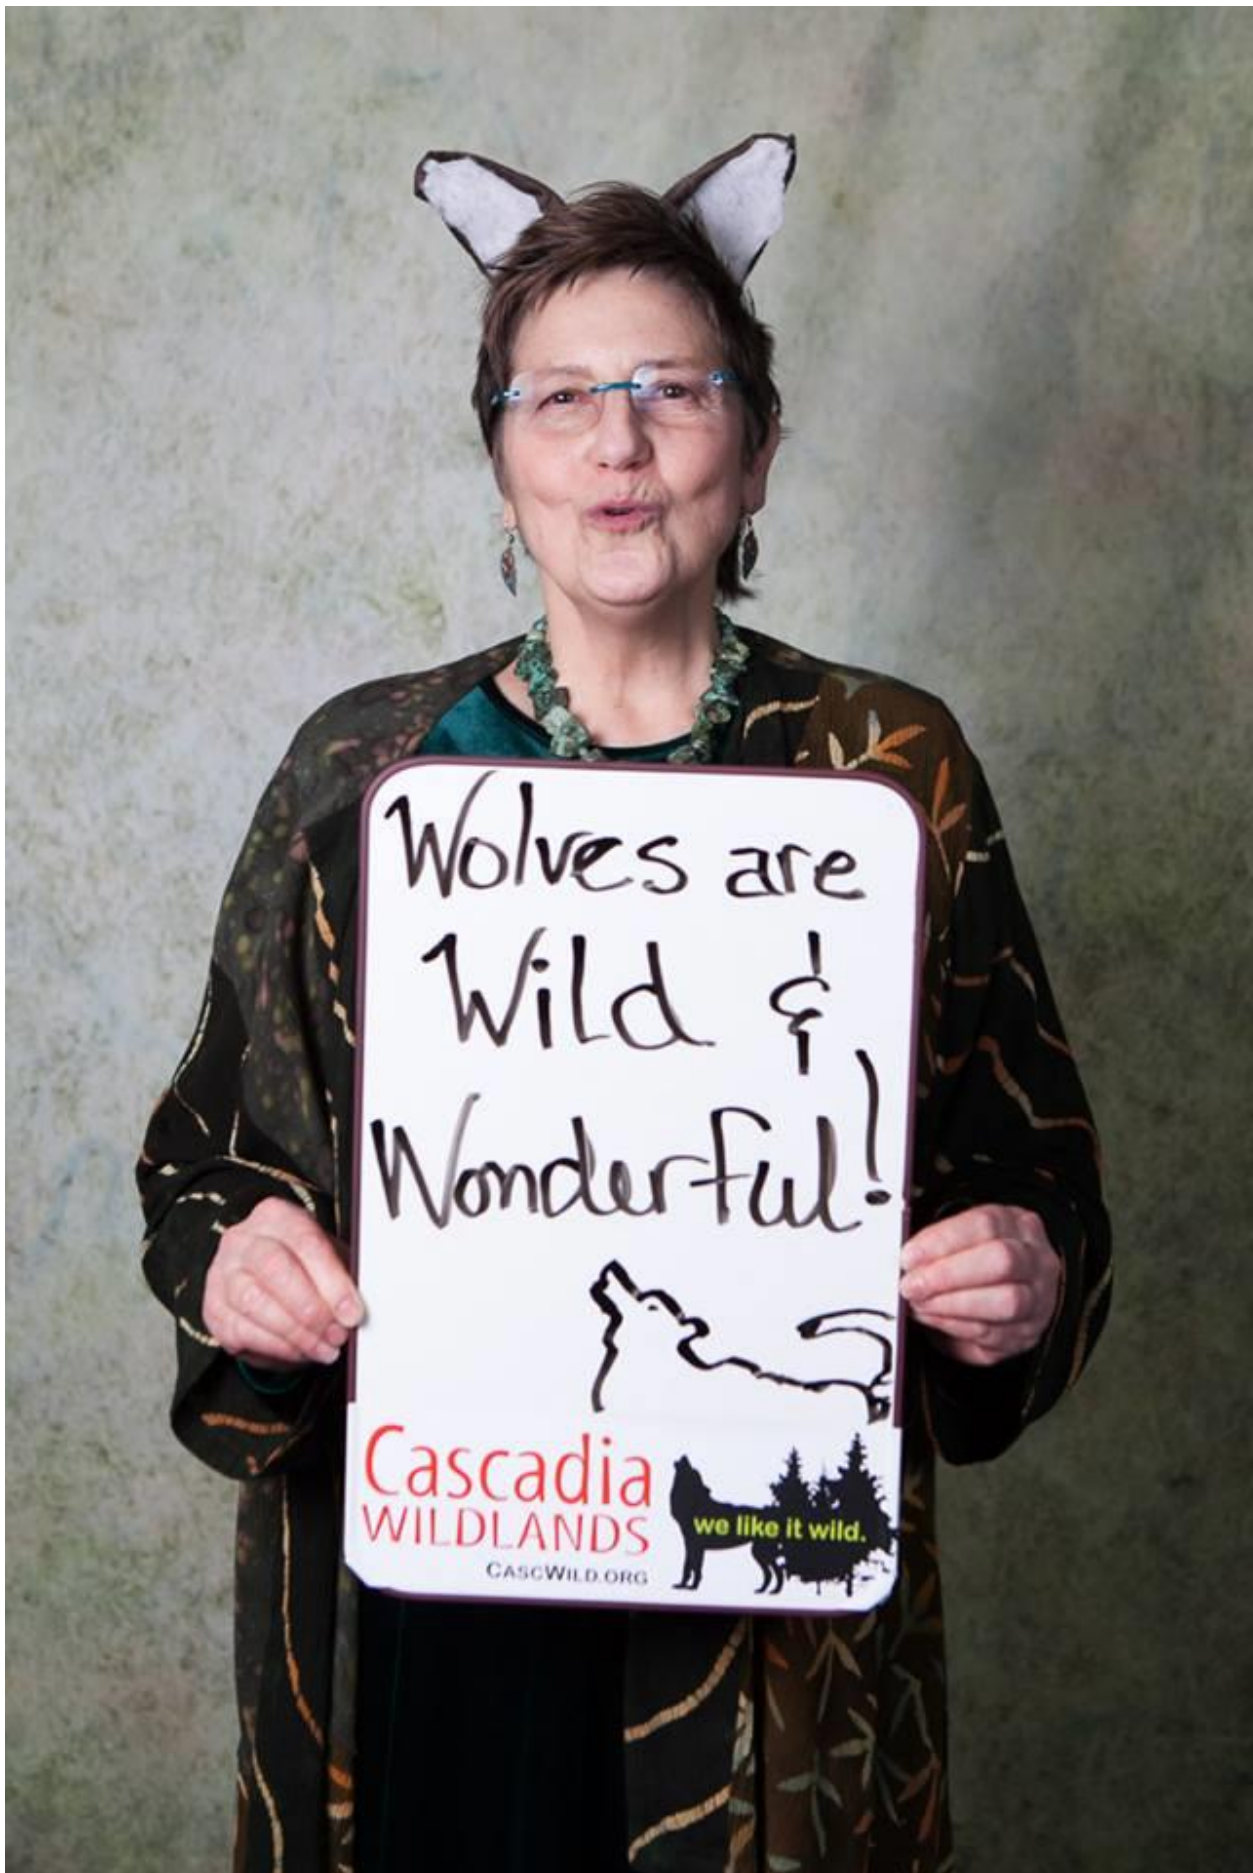 Wolves are
Wild &
Wonderful!
Cascadia
WILDLANDS
CASCWILD.ORG
we like it wild.